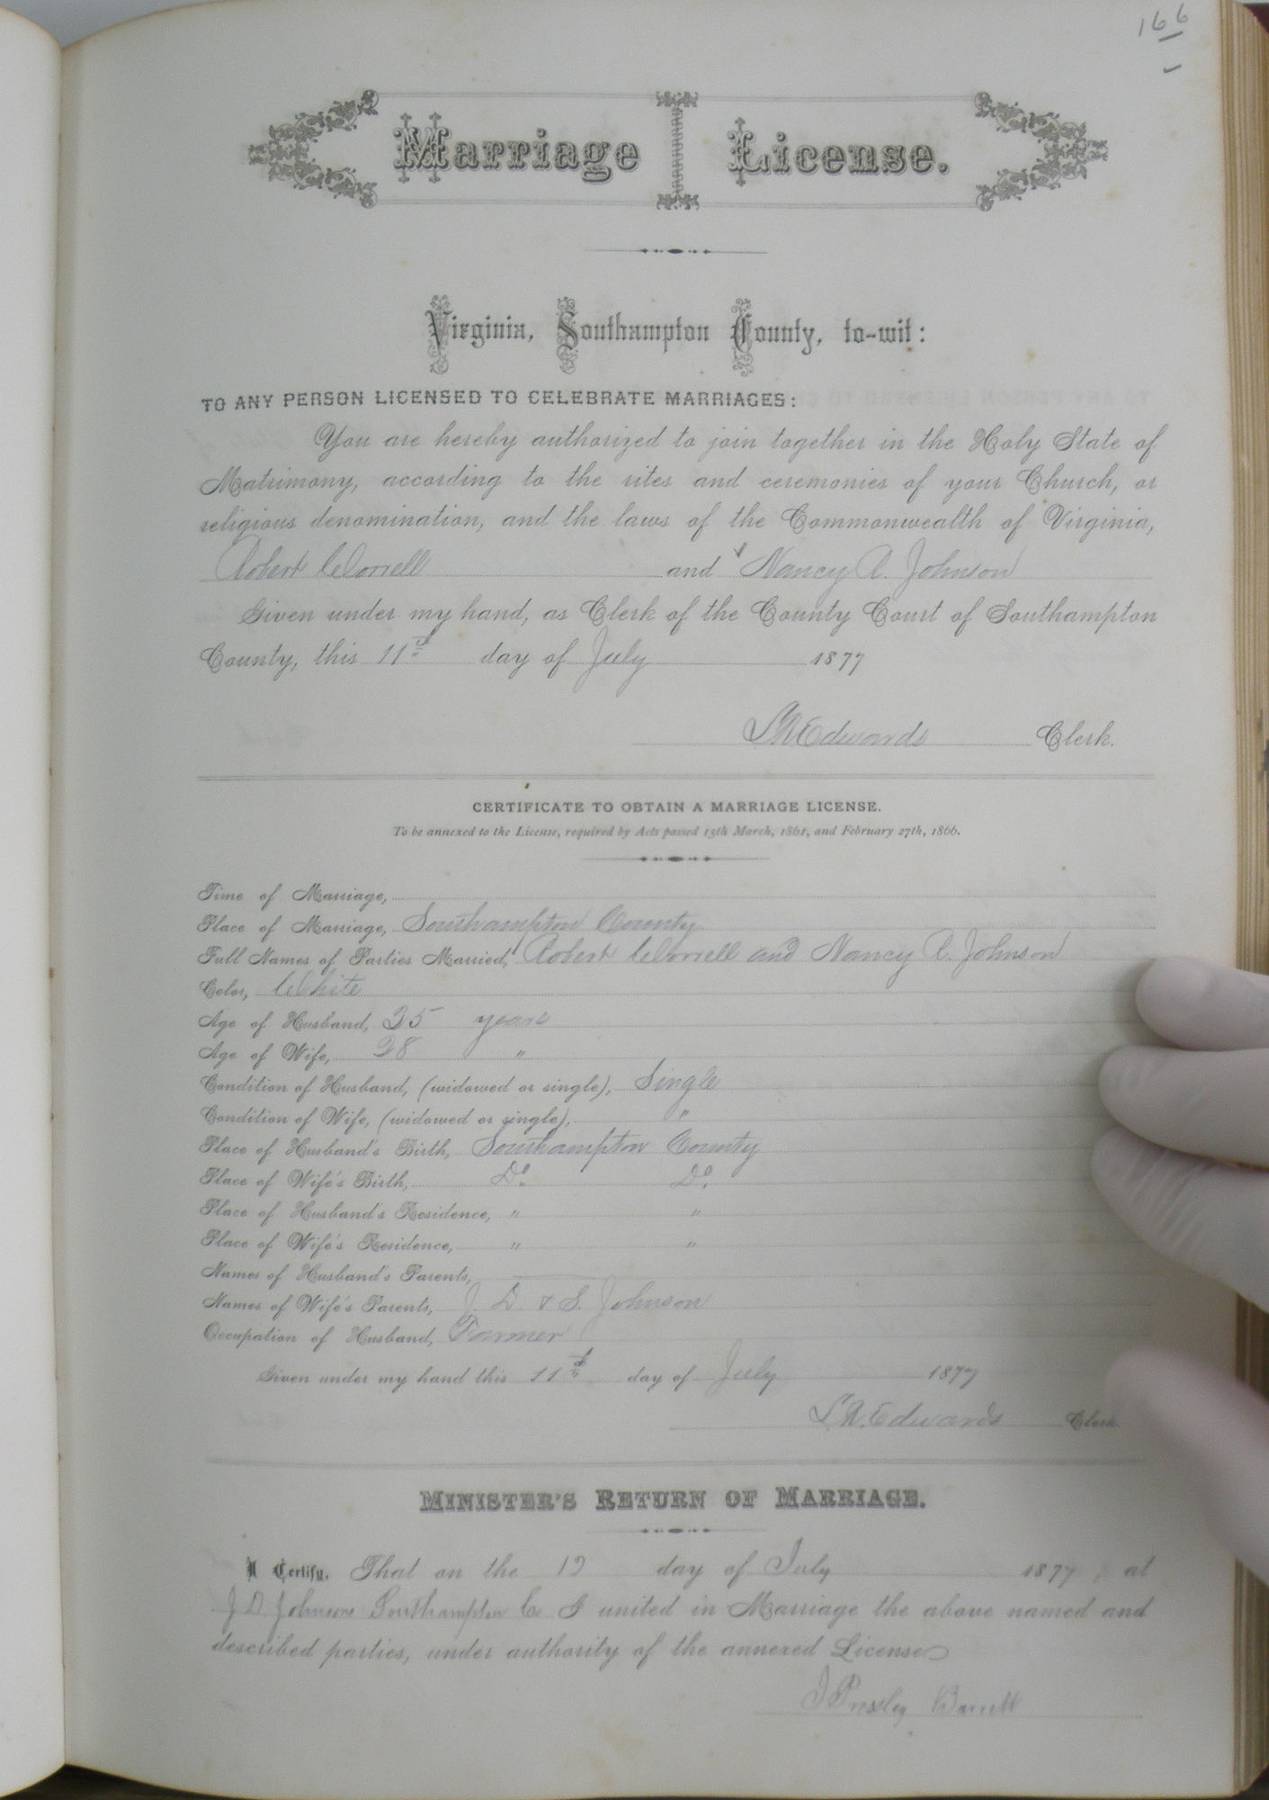 166
Marriage License.
Virginia, Southampton County, to-wit:
TO ANY PERSON LICENSED TO CELEBRATE MARRIAGES:
You are hereby authorized to join together in the Holy State of
Matrimony, according to the rites and ceremonies of your Church, or
religious denomination, and the laws of the Commonwealth of Virginia,
Robert Worrell and Nancy A. Johnson
Given under my hand, as Clerk of the County Court of Southampton
County, this 11th day of July 1877
L R Edwards Clerk.
CERTIFICATE TO OBTAIN A MARRIAGE LICENSE.
To be annexed to the License, required by Acts passed 15th March, 1861, and February 27th, 1866.
Time of Marriage,
Place of Marriage, Southampton County
Full Names of Parties Married, Robert Worrell and Nancy A. Johnson
Color, White
Age of Husband, 35 years
Age of Wife, 38 "
Condition of Husband, (widowed or single), Single
Condition of Wife, (widowed or single), "
Place of Husband's Birth, Southampton County
Place of Wife's Birth, Do. Do.
Place of Husband's Residence, " "
Place of Wife's Residence, " "
Names of Husband's Parents,
Names of Wife's Parents, J. D. & S. Johnson
Occupation of Husband, Farmer
Given under my hand this 11th day of July 1877
L. R. Edwards Clerk
MINISTER'S RETURN OF MARRIAGE.
I Certify, That on the 12 day of July 1877, at
J D Johnsons Southampton Co I united in Marriage the above named and
described parties, under authority of the annexed License
J Presley Barrett